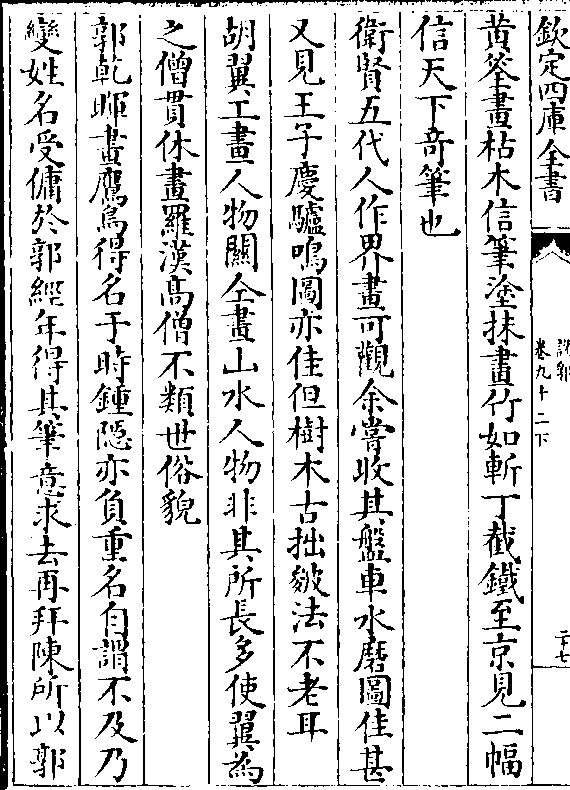 欽定四庫全書
說郛
卷九十二下
二十七
黄筌畫枯木信筆塗抺畫竹如斬丁截鐵至京見二幅
信天下竒筆也
衛賢五代人作界畫可觀余嘗收其盤車水磨圖佳甚
又見王子慶驢鳴圖亦佳但樹木古拙皴法不老耳
胡翼工畫人物闗仝畫山水人物非其所長多使翼為
之僧貫休畫羅漢髙僧不類世俗貌
郭乾暉畫鷹鳥得名于時鍾隠亦負重名自謂不及乃
變姓名受傭於郭經年得其筆意求去再拜陳所以郭